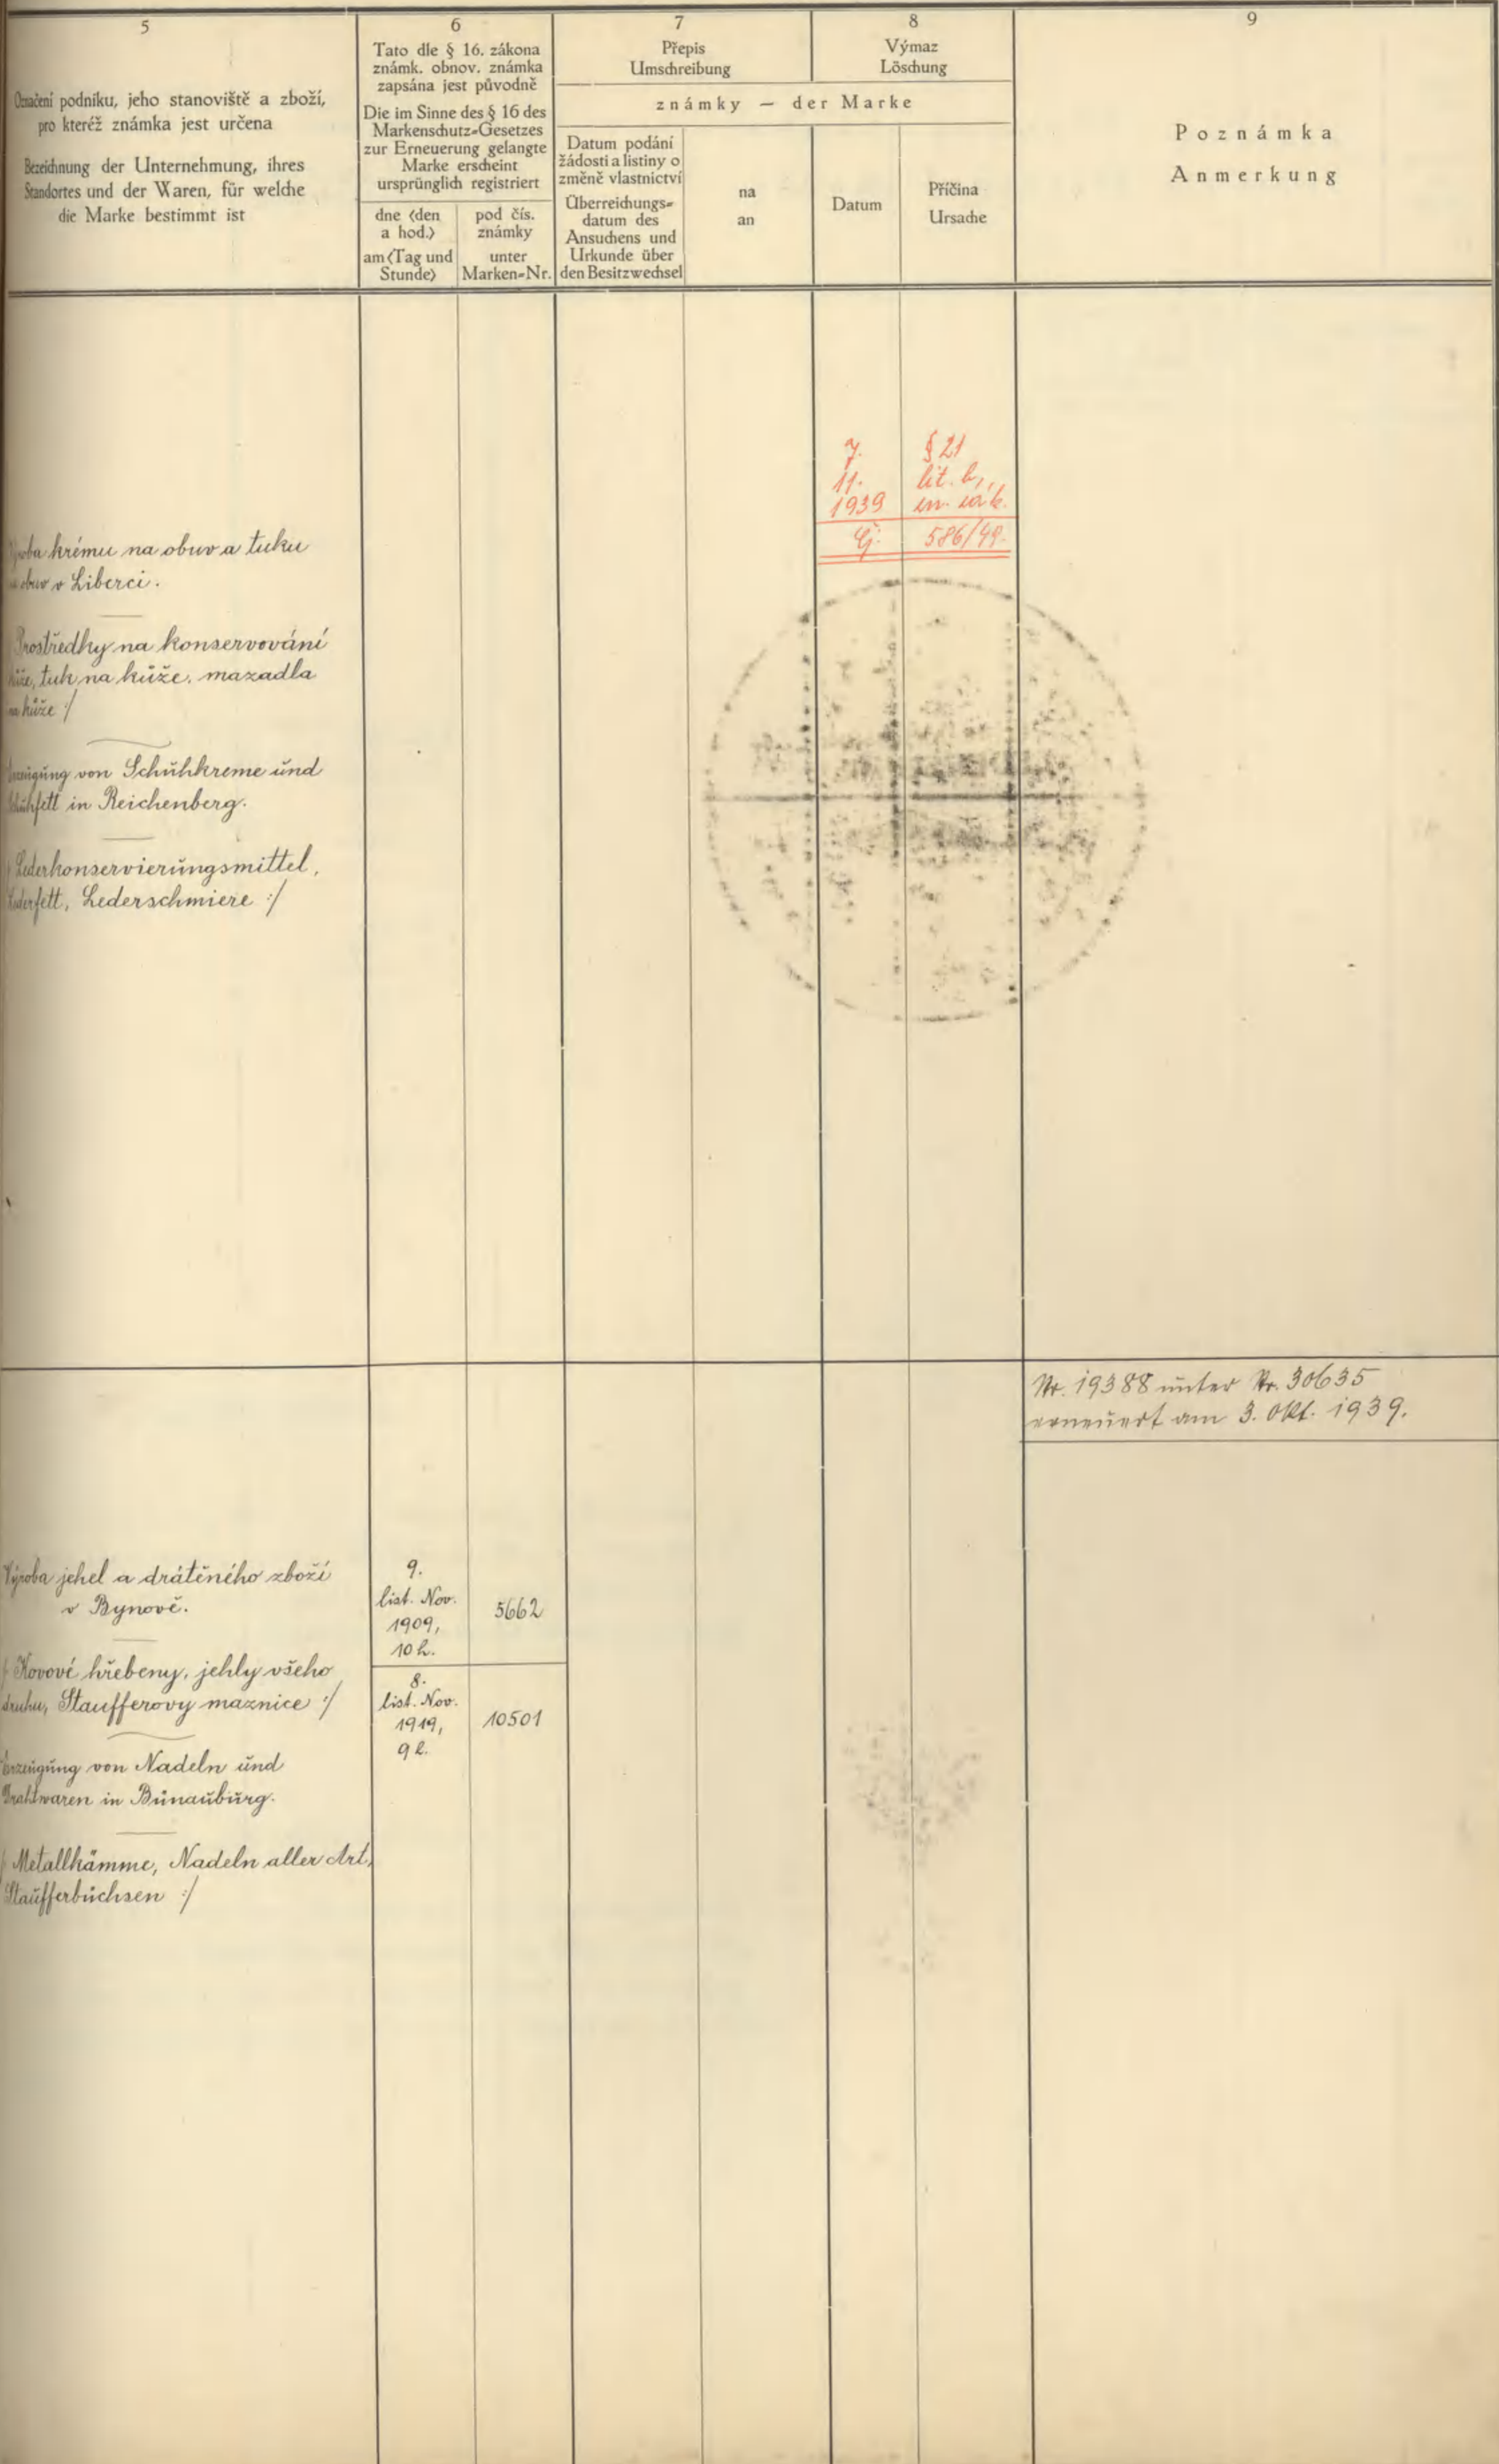 5
Označení podniku, jeho stanoviště a zboží,
pro kteréž známka jest určena
Bezeichnung der Unternehmung, ihres
Standortes und der Waren, für welche
die Marke bestimmt ist
6
Tato dle § 16. zákona
známk. obnov. známka
zapsána jest původně
Die im Sinne des § 16 des
Markenschutz-Gesetzes
zur Erneuerung gelangte
Marke erscheint
ursprünglich registriert
dne (den
a hod.)
am (Tag und
Stunde)
pod čís.
známky
unter
Marken-Nr.
7
Přepis
Umschreibung
8
Výmaz
Löschung
známky — der Marke
Datum podání
žádosti a listiny o
změně vlastnictví
Überreichungs-
datum des
Ansuchens und
Urkunde über
den Besitzwechsel
na
an
Datum
Příčina
Ursache
9
Poznámka
Anmerkung
7.
11.
1939
§ 21
lit. b,
586/49.
krému na obuv a tuku
obuv v Liberci.
Prostředky na konservování
kůže, tuk na kůže, mazadla
na kůže :/
Erzeugung von Schuhkreme und
Schuhfett in Reichenberg.
Lederkonservierungsmittel,
Lederfett, Lederschmiere :/
Nr. 19388 unter Nr. 30635
erneuert am 3. Okt. 1939.
Výroba jehel a drátěného zboží
v Bynově.
/: Kovové hřebeny, jehly všeho
druhu, Staufferovy maznice :/
Erzeugung von Nadeln und
Drahtwaren in Bünauburg.
/: Metallkämme, Nadeln aller Art,
Staufferbüchsen :/
9.
list. Nov.
1909,
10 h.
5662
8.
list. Nov.
1919,
9 h.
10501